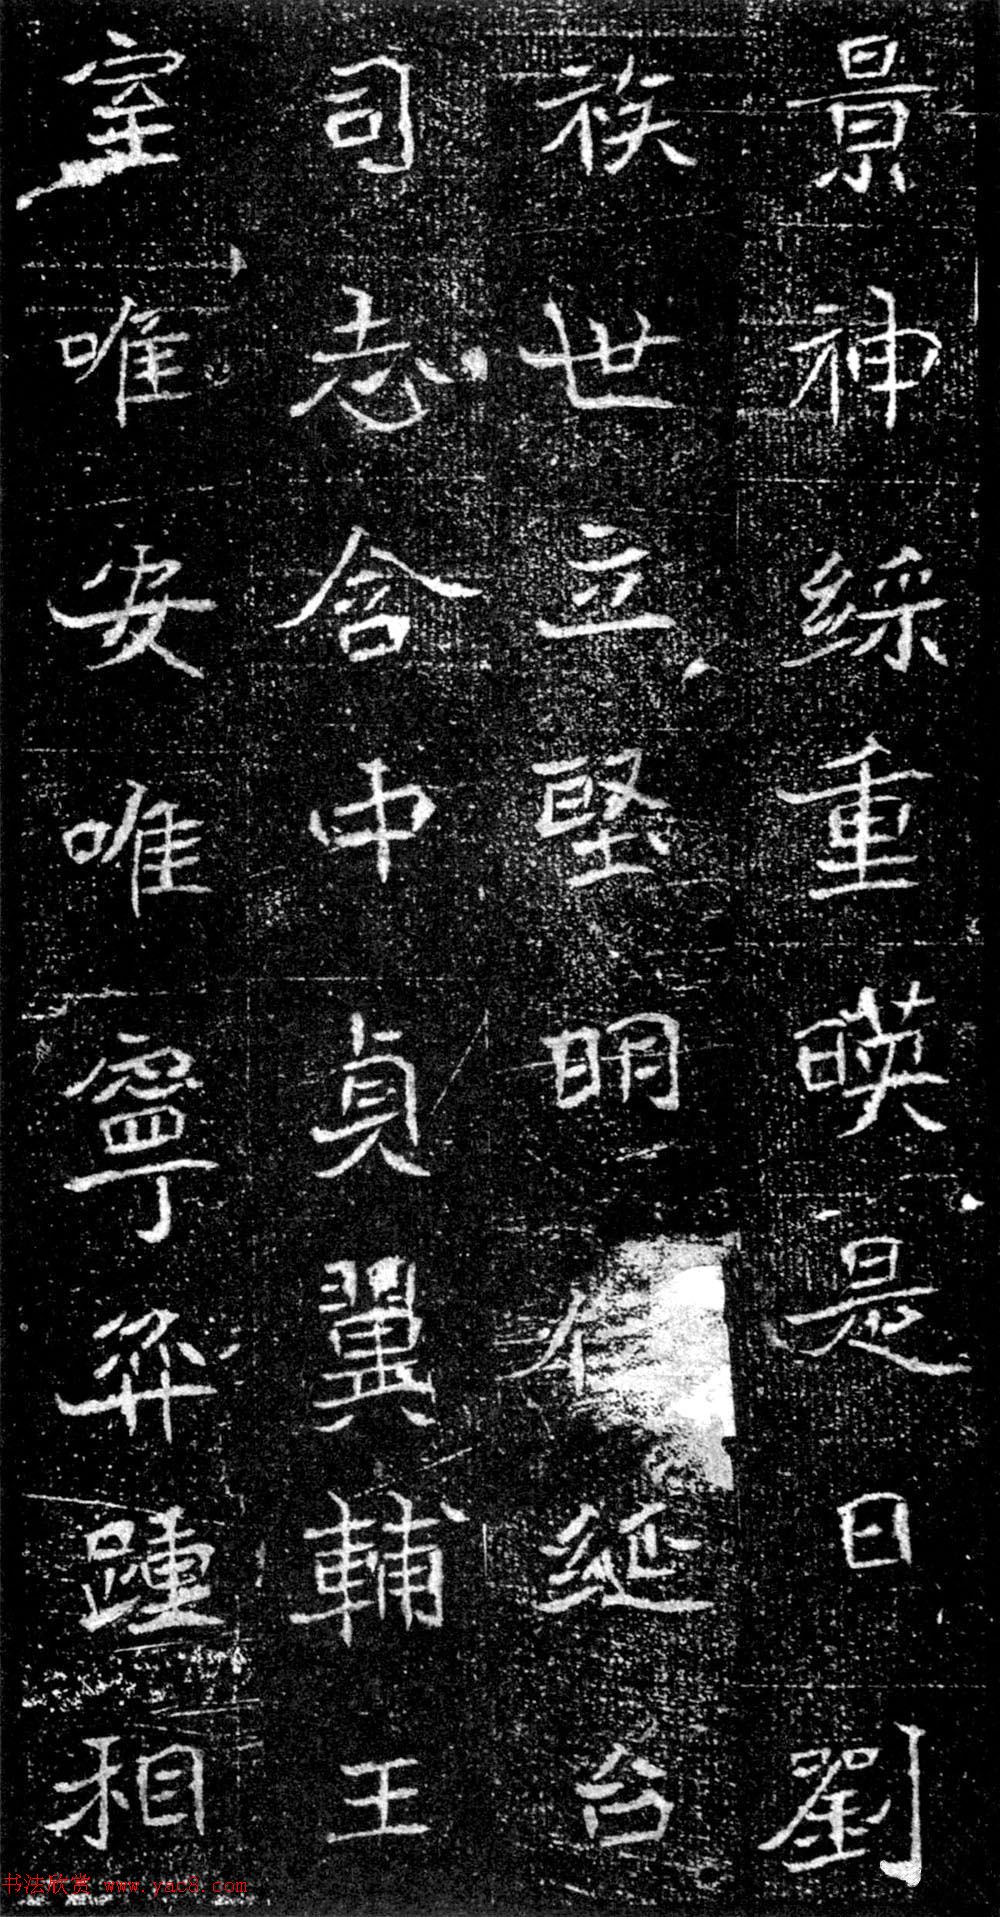 景神綵重暎是日劉
族世立堅明延台
司志含中貞翼輔王
室唯安唯寧弈踵相
书法欣赏 www.yac8.com